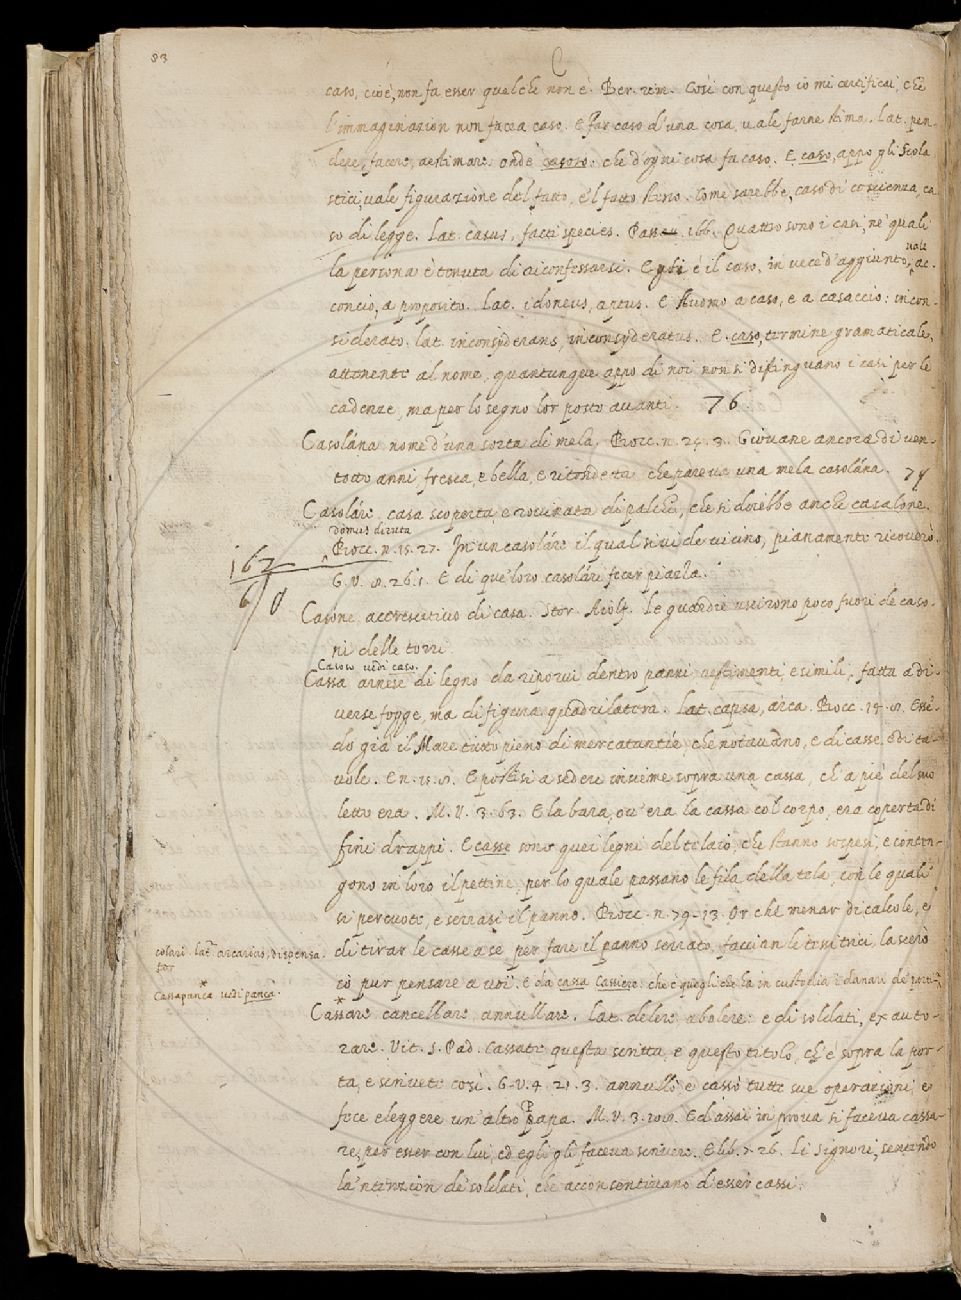 83
C
caso, cioè, non fa esser quel che non è. Ber. rim. Così con questo io mi certificai, che
l'immaginazion non facea caso. E far caso d'una cosa, vale farne stima. Lat. pen-
dere, facere, aestimare. onde casoso: che d'ogni cosa fa caso. E caso, appo gli Scola
stici, vale figurazione del fatto, e'l fatto stesso. Come sarebbe, caso di coscienza, ca
so di legge. Lat. casus, facti species. Pass. 166. Quattro sono i casi, ne' quali
la persona è tenuta di riconfessarsi. E è il caso, in vece d'aggiunto, vale ac-
concio, a proposito. Lat. idoneus, aptus. E huomo a caso, e a casaccio: incon-
siderato. lat. inconsyderans, inconsyderatus. E caso, termine gramaticale,
attenente al nome, quantunque appo di noi non si distinguano i casi per le
cadenze, ma per lo segno lor posto avanti. 76
Casolána nome d'una sorta di mela. Bocc. n. 24. 3. Giovane ancora di ven-
totto anni fresca, e bella, e ritondetta che pareva una mela casolána. 77
Casoláre. casa scoperta, e rovinata di palchi, che si direbbe anche casalone.
domus diruta
Bocc. n. 15. 27. In un casoláre il qual si vide vicino, pianamente ricoverò.
G. V. 8. 26. 1. E di que' loro casolári fecer piazza.
162
6/0
Casóne accrescitivo di casa. Stor. Aiolf. Le guardie uscirono poco fuori de caso-
ni delle torri.
Casoso vedi caso.
Cassa arnese di legno da riporvi dentro panni vestimenti, e simili, fatta a di-
verse fogge, ma di figura quadrilatera. Lat. capsa, arca. Bocc. 14. 8. Essē-
do già il Mare tutto pieno di mercatantíe, che notavano, e di casse, e di ta-
vole. E n. 15. 8. E postisi a sedere insieme sopra una cassa, ch'a piè del suo
letto era. M. V. 3. 63. E la bara, ov'era la cassa col corpo, era coperta di
fini drappi. E casse sono quei legni del telaio, che stanno sospesi, e conten-
gono in loro il pettine, per lo quale passano le fila della tela, con le quali
si percuote, e serrasi il panno. Bocc. n. 79-13. Or che menar di calcole, e
di tirar le casse a se per fare il panno serrato, faccian le tessitrici, lascerò
io pur pensare a voi. E da cassa Cassiere: che è quegli che ha in custodia i danari de'
colari. lat. arcarius, dispensa
tor
Cassapanca* vedi panca.
*
Cassare cancellare, annullare. Lat. delere abolere: e di soldati, exauto-
rare. Vit. S. Pad. Cassate questa scritta, e questo titolo, ch'è sopra la por-
ta, e scrivete così. G. V. 4. 21. 3. annullò e cassò tutte sue operazioni, e
fece eleggere un'altro Papa. M. V. 3. 108. Ed assai in prova si faceva cassa-
re, per esser con lui, ed egli gli faceva scrivere. E lib. 7. 26. Li signori, sentendo
la'ntenzion de' soldati, che acconsentivano d'esser cassi.